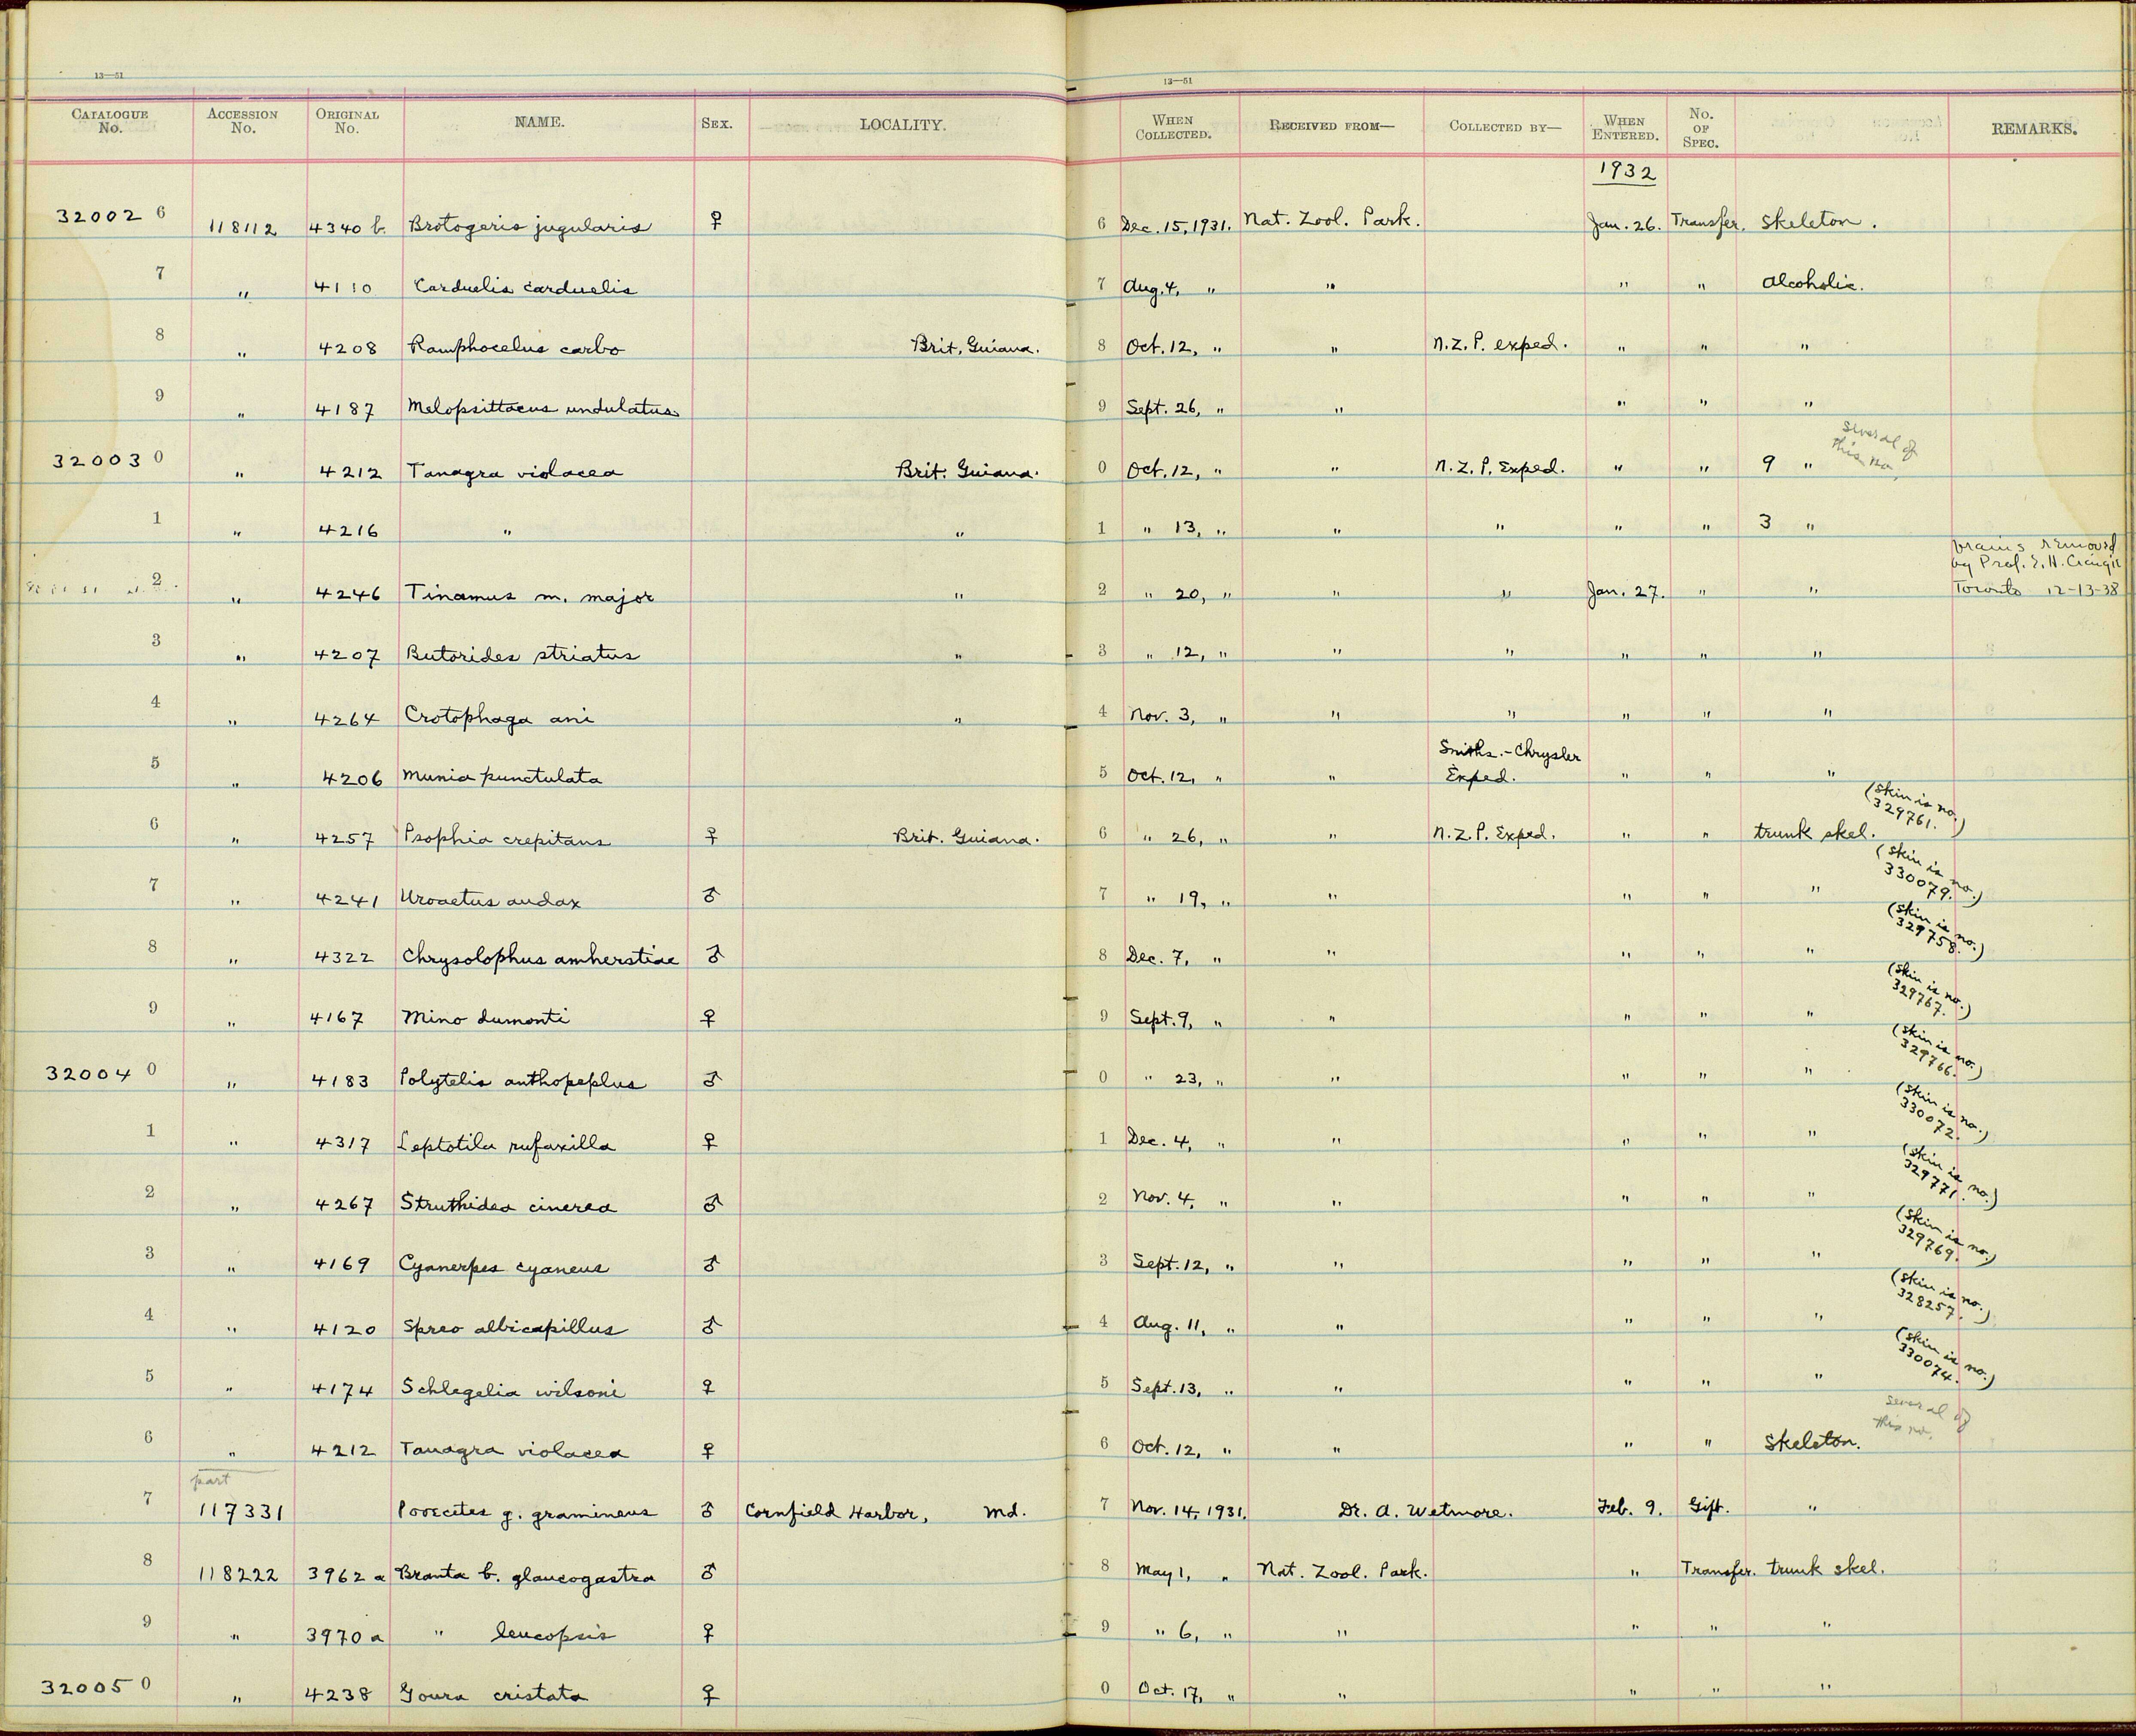 13—51 13—51
CATALOGUE No. ACCESSION No. ORIGINAL No. NAME. SEX. LOCALITY. WHEN COLLECTED. RECEIVED FROM— COLLECTED BY— WHEN ENTERED. No. OF SPEC. REMARKS.
1932
32002 6 118112 4340 b. Brotogeris jugularis ♀ 6 Dec. 15, 1931. Nat. Zool. Park. Jan. 26. Transfer. Skeleton.
7 " 4110 Carduelis carduelis 7 Aug. 4, " " " " Alcoholic.
8 " 4208 Ramphocelus carbo Brit. Guiana. 8 Oct. 12, " " N.Z.P. exped. " " "
9 " 4187 Melopsittacus undulatus 9 Sept. 26, " " " " "
several of this no.
32003 0 " 4212 Tanagra violacea Brit. Guiana. 0 Oct. 12, " " N.Z.P. Exped. " " 9 "
1 " 4216 " " 1 " 13, " " " " " 3 "
brains removed
by Prof. E. H. Craigie
2 " 4246 Tinamus m. major " 2 " 20, " " " Jan. 27. " " Toronto 12-13-38
3 " 4207 Butorides striatus " 3 " 12, " " " " " "
4 " 4264 Crotophaga ani " 4 Nov. 3, " " " " " "
5 " 4206 Munia punctulata 5 Oct. 12, " " Smiths.-Chrysler Exped. " " "
6 " 4257 Psophia crepitans ♀ Brit. Guiana. 6 " 26, " " N.Z.P. Exped. " " trunk skel. (Skin is no. 329761.)
7 " 4241 Uroaetus audax ♂ 7 " 19, " " " " " (Skin is no. 330079.)
8 " 4322 Chrysolophus amherstiae ♂ 8 Dec. 7, " " " " " (Skin is no. 329758.)
9 " 4167 Mino dumonti ♀ 9 Sept. 9, " " " " " (Skin is no. 329767.)
32004 0 " 4183 Polytelis anthopeplus ♂ 0 " 23, " " " " " (Skin is no. 329766.)
1 " 4317 Leptotila rufaxilla ♀ 1 Dec. 4, " " " " " (Skin is no. 330072.)
2 " 4267 Struthidea cinerea ♂ 2 Nov. 4, " " " " " (Skin is no. 329771.)
3 " 4169 Cyanerpes cyaneus ♂ 3 Sept. 12, " " " " " (Skin is no. 329769.)
4 " 4120 Spreo albicapillus ♂ 4 Aug. 11, " " " " " (Skin is no. 328257.)
5 " 4174 Schlegelia wilsoni ♀ 5 Sept. 13, " " " " " (Skin is no. 330074.)
several of this no.
6 " 4212 Tanagra violacea ♀ 6 Oct. 12, " " " " Skeleton.
part
7 117331 Pooecetes g. gramineus ♂ Cornfield Harbor, Md. 7 Nov. 14, 1931. Dr. A. Wetmore. Feb. 9. Gift. "
8 118222 3962 a Branta b. glaucogastra ♂ 8 May 1, " Nat. Zool. Park. " Transfer. trunk skel.
9 " 3970 a " leucopsis ♀ 9 " 6, " " " " "
32005 0 " 4238 Goura cristata ♀ 0 Oct. 17, " " " " "